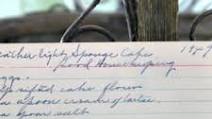 Feather light Sponge Cake 19
Good Housekeeping
eggs.
up sifted cake flour
spoon cream of tartar
spoon salt